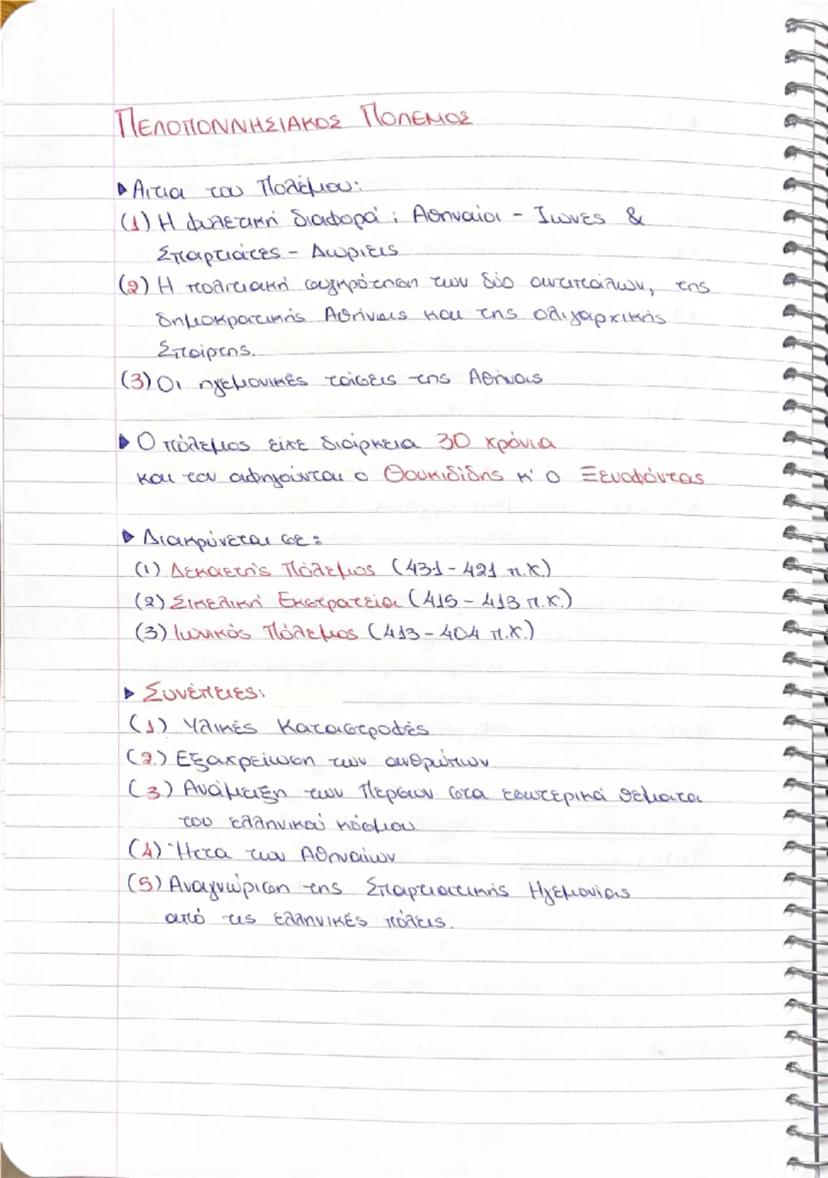 ΠΕΛΟΠΟΝΝΗΣΙΑΚΟΣ ΠΟΛΕΜΟΣ
▶ Αιτια του Πολέμου:
(1) Η φυλετική διαφορά ; Αθηναίοι - Ίωνες &
Σπαρτιάτες - Δωριείς
(2) Η πολιτειακή συγκρότηση των δύο αντιπάλων, της
δημοκρατικής Αθήνας και της ολιγαρχικής
Σπάρτης.
(3) Οι ηγεμονικές τάσεις της Αθήνας
▶ Ο πόλεμος είχε διάρκεια 30 χρόνια
και τον αφηγούνται ο Θουκιδίδης κ' ο Ξενοφόντας
▶ Διακρίνεται σε:
(1) Δεκαετής Πόλεμος (431 - 421 π.Χ.)
(2) Σικελική Εκστρατεία (415 - 413 π.Χ.)
(3) Ιωνικός Πόλεμος (413 - 404 π.Χ.)
▶ Συνέπειες:
(1) Υλικές Καταστροφές
(2) Εξαχρείωση των ανθρώπων
(3) Ανάμειξη των Περσών στα εσωτερικά θέματα
του ελληνικού κόσμου
(4) Ήττα των Αθηναίων
(5) Αναγνώριση της Σπαρτιατικής Ηγεμονίας
από τις ελληνικές πόλεις.